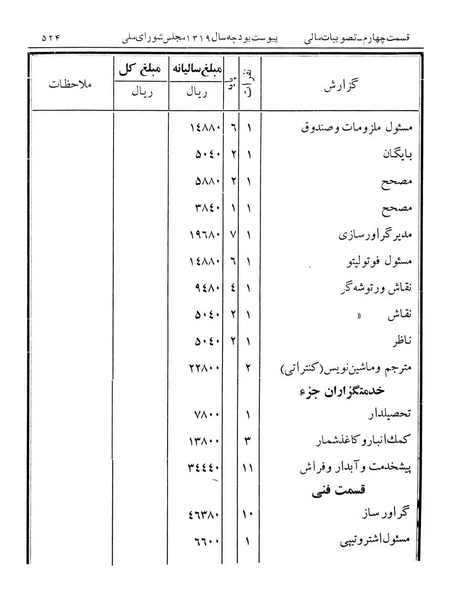 قسمت چهارم ـ تصویبات مالی پیوست بودجه سال ۱۳۱۹ مجلس شورای ملی ۵۲۴
گزارش نفرات پایه مبلغ سالیانه ریال مبلغ کل ریال ملاحظات
مسئول ملزومات وصندوق ۱ ۶ ۱٤۸۸۰
بایگان ۱ ۲ ۵۰٤۰
مصحح ۱ ۲ ۵۸۸۰
مصحح ۱ ۱ ۳۸٤۰
مدیر گراورسازی ۱ ۷ ۱۹٦۸۰
مسئول فوتولیتو ۱ ٦ ۱٤۸۸۰
نقاش ورتوشه‌گر ۱ ٤ ۹٤۸۰
نقاش » ۱ ۲ ۵۰٤۰
ناظر ۱ ۲ ۵۰٤۰
مترجم وماشین‌نویس (کنتراتی) ۲ ۲۲۸۰۰
خدمتگزاران جزء
تحصیلدار ۱ ۷۸۰۰
كمك انبار و کاغذشمار ۳ ۱۳۸۰۰
پیشخدمت و آبدار وفراش ۱۱ ۳٤٤٤۰
قسمت فنی
گراور ساز ۱۰ ٤٦۳۸۰
مسئول اشتروتیپی ۱ ٦٦۰۰